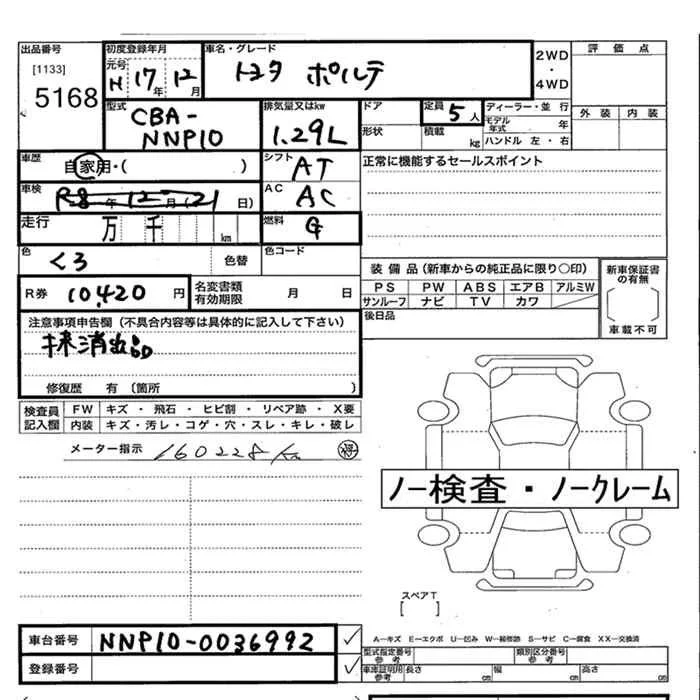 出品番号 初度登録年月 車名・グレード 2WD・4WD 評価点
[1133] 元号
5168 H 17年 12月 トヨタ ポルテ
型式 排気量又はkw ドア 定員 5人 ディーラー・並行 外装 内装
CBA- モデル年式 年
NNP10 1.29L 形状 積載 kg ハンドル 左・右
車歴 自家用・( ) シフト AT 正常に機能するセールスポイント
車検 年 12月 (21日) AC AC
走行 万 千 km 燃料 G
色 くろ 色替 色コード
装備品(新車からの純正品に限り○印) 新車保証書の有無
R券 10,420円 名変書類有効期限 月 日 PS PW ABS エアB アルミW
サンルーフ ナビ TV カワ
後日品 車載不可
注意事項申告欄(不具合内容等は具体的に記入して下さい)
抹消出品
修復歴 有 〔箇所 〕
検査員記入欄 FW キズ・飛石・ヒビ割・リペア跡・X要
内装 キズ・汚レ・コゲ・穴・スレ・キレ・破レ
メーター指示 160228km
ノー検査・ノークレーム
スペアT
[ ]
車台番号 NNP10-0036992 ✓
A―キズ E―エクボ U―凹み W―補修跡 S―サビ C―腐食 XX―交換済
型式指定番号 参考 類別区分番号 参考
登録番号 ✓ 車庫証明用参考 長さ cm 幅 cm 高さ cm